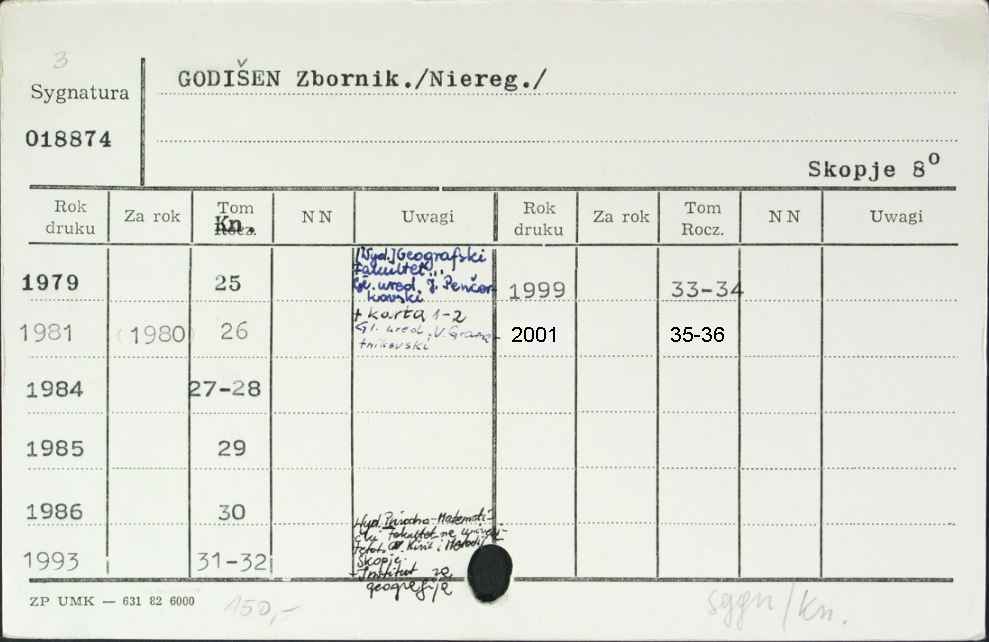 3
Sygnatura
018874
GODIŠEN Zbornik./Niereg./
Skopje 8º
Rok druku Za rok Tom Kn. Rocz. NN Uwagi Rok druku Za rok Tom Rocz. NN Uwagi
1979 25 [Wyd.] Geografski
Fakultet...
Gł. ured. J. Penčor-
kovski
1999 33-34
1981 (1980) 26 + karta 1-2
Gl. ured. V.
tnikovski
2001 35-36
1984 27-28
1985 29
1986 30 Wyd. Prirodno-Matemati-
čki Fakultet na
Kiril i Metodij
Skopje.
1993 31-32 + Institut za
geografija
ZP UMK — 631 82 6000
150,-
sggn/kn.